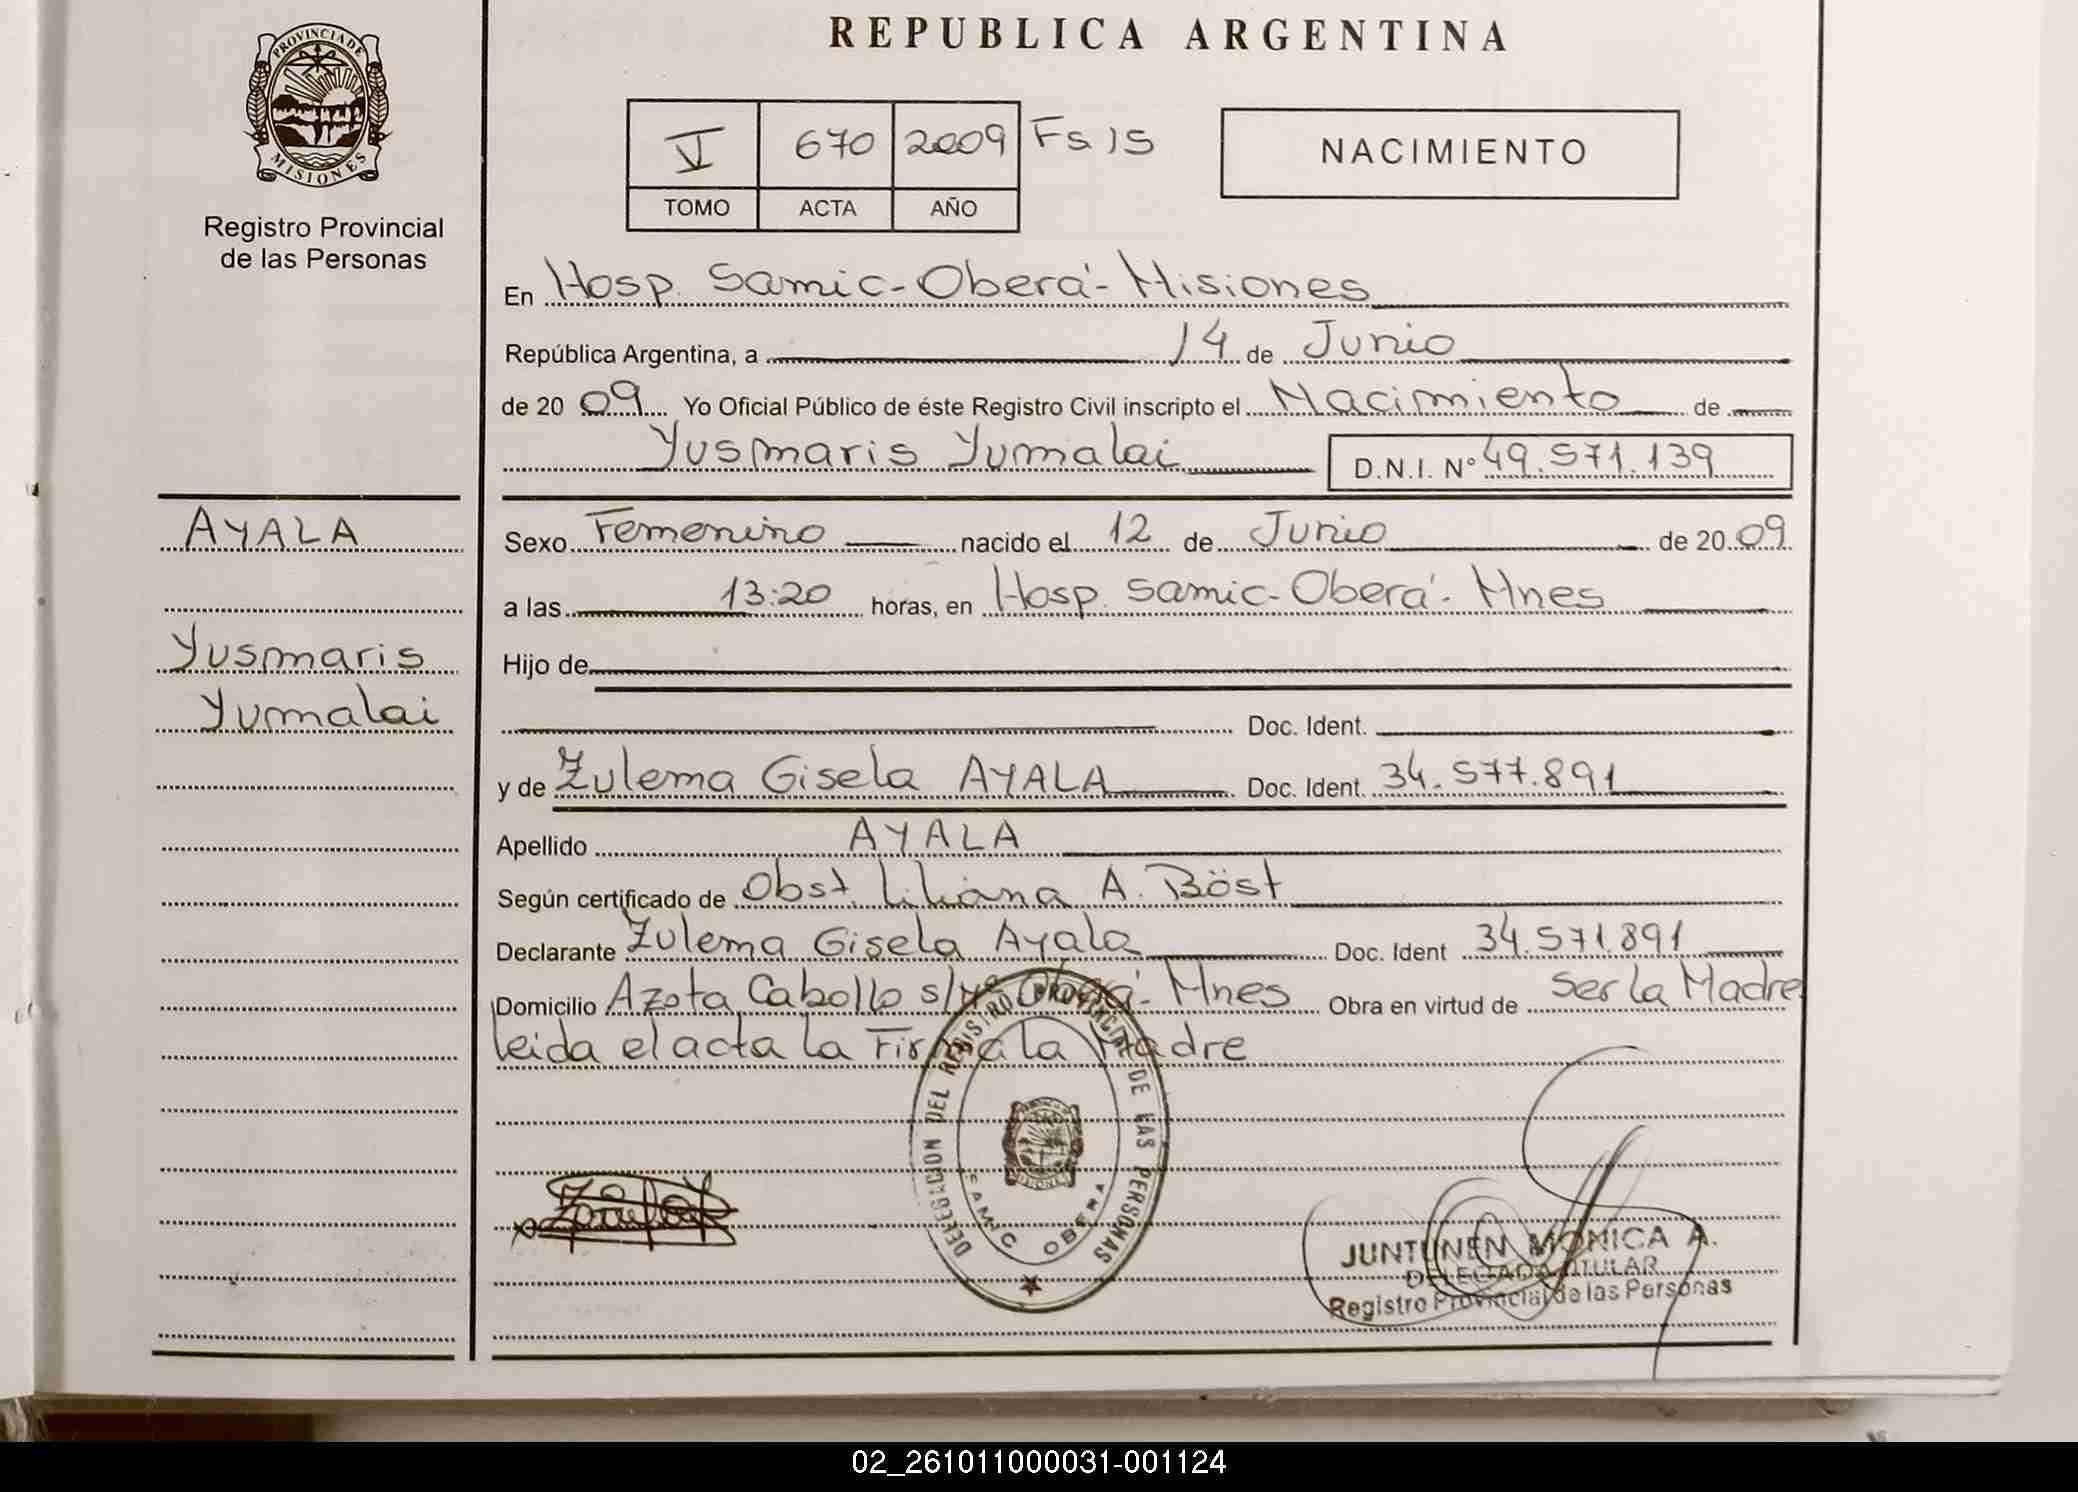 REPUBLICA ARGENTINA
PROVINCIA DE
MISIONES
Registro Provincial
de las Personas
V 670 2009 Fs 15
TOMO ACTA AÑO
NACIMIENTO
En Hosp. Samic-Oberá-Misiones
República Argentina, a 14 de Junio
de 20 09 Yo Oficial Público de éste Registro Civil inscripto el Nacimiento de
Yusmaris Yumalai D.N.I. Nº 49.571.139
AYALA
Yusmaris
Yumalai
Sexo Femenino nacido el 12 de Junio de 20 09
a las 13:20 horas, en Hosp. Samic-Oberá-Mnes
Hijo de
Doc. Ident.
y de Zulema Gisela AYALA Doc. Ident. 34.577.891
Apellido AYALA
Según certificado de Obst. Liliana A. Böst
Declarante Zulema Gisela Ayala Doc. Ident 34.571.891
Domicilio Azota Caballo Oberá-Mnes Obra en virtud de Ser la Madre
leida el acta la Firma la Madre
DELEGACION DEL REGISTRO PROVINCIAL DE LAS PERSONAS
SAMIC OBERA
JUNTUNEN MONICA A.
DELEGADA TITULAR
Registro Provincial de las Personas
02_261011000031-001124